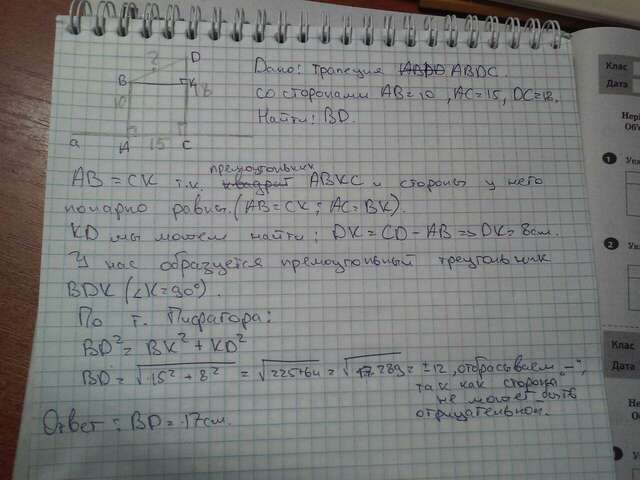 Дано: трапеция ABDC.
со сторонами AB=10, AC=15, DC=18.
Найти: BD.
? D
B K
10
a A 15 C
прямоугольник
AB = CK т.к. квадрат ABKC и стороны у него
попарно равны. (AB=CK; AC=BK).
KD мы можем найти: DK=CD-AB=>DK=8см.
У нас образуется прямоугольный треугольник
BDK (∠K=90°).
По т. Пифагора:
BD²= BK²+KD²
BD=√15²+8² = √225+64 = √289 = ±12, отбрасываем „-",
так как сторона
не может быть
отрицательной.
Ответ: BD=17см.
Клас
Дата
1
2
Клас
Дата